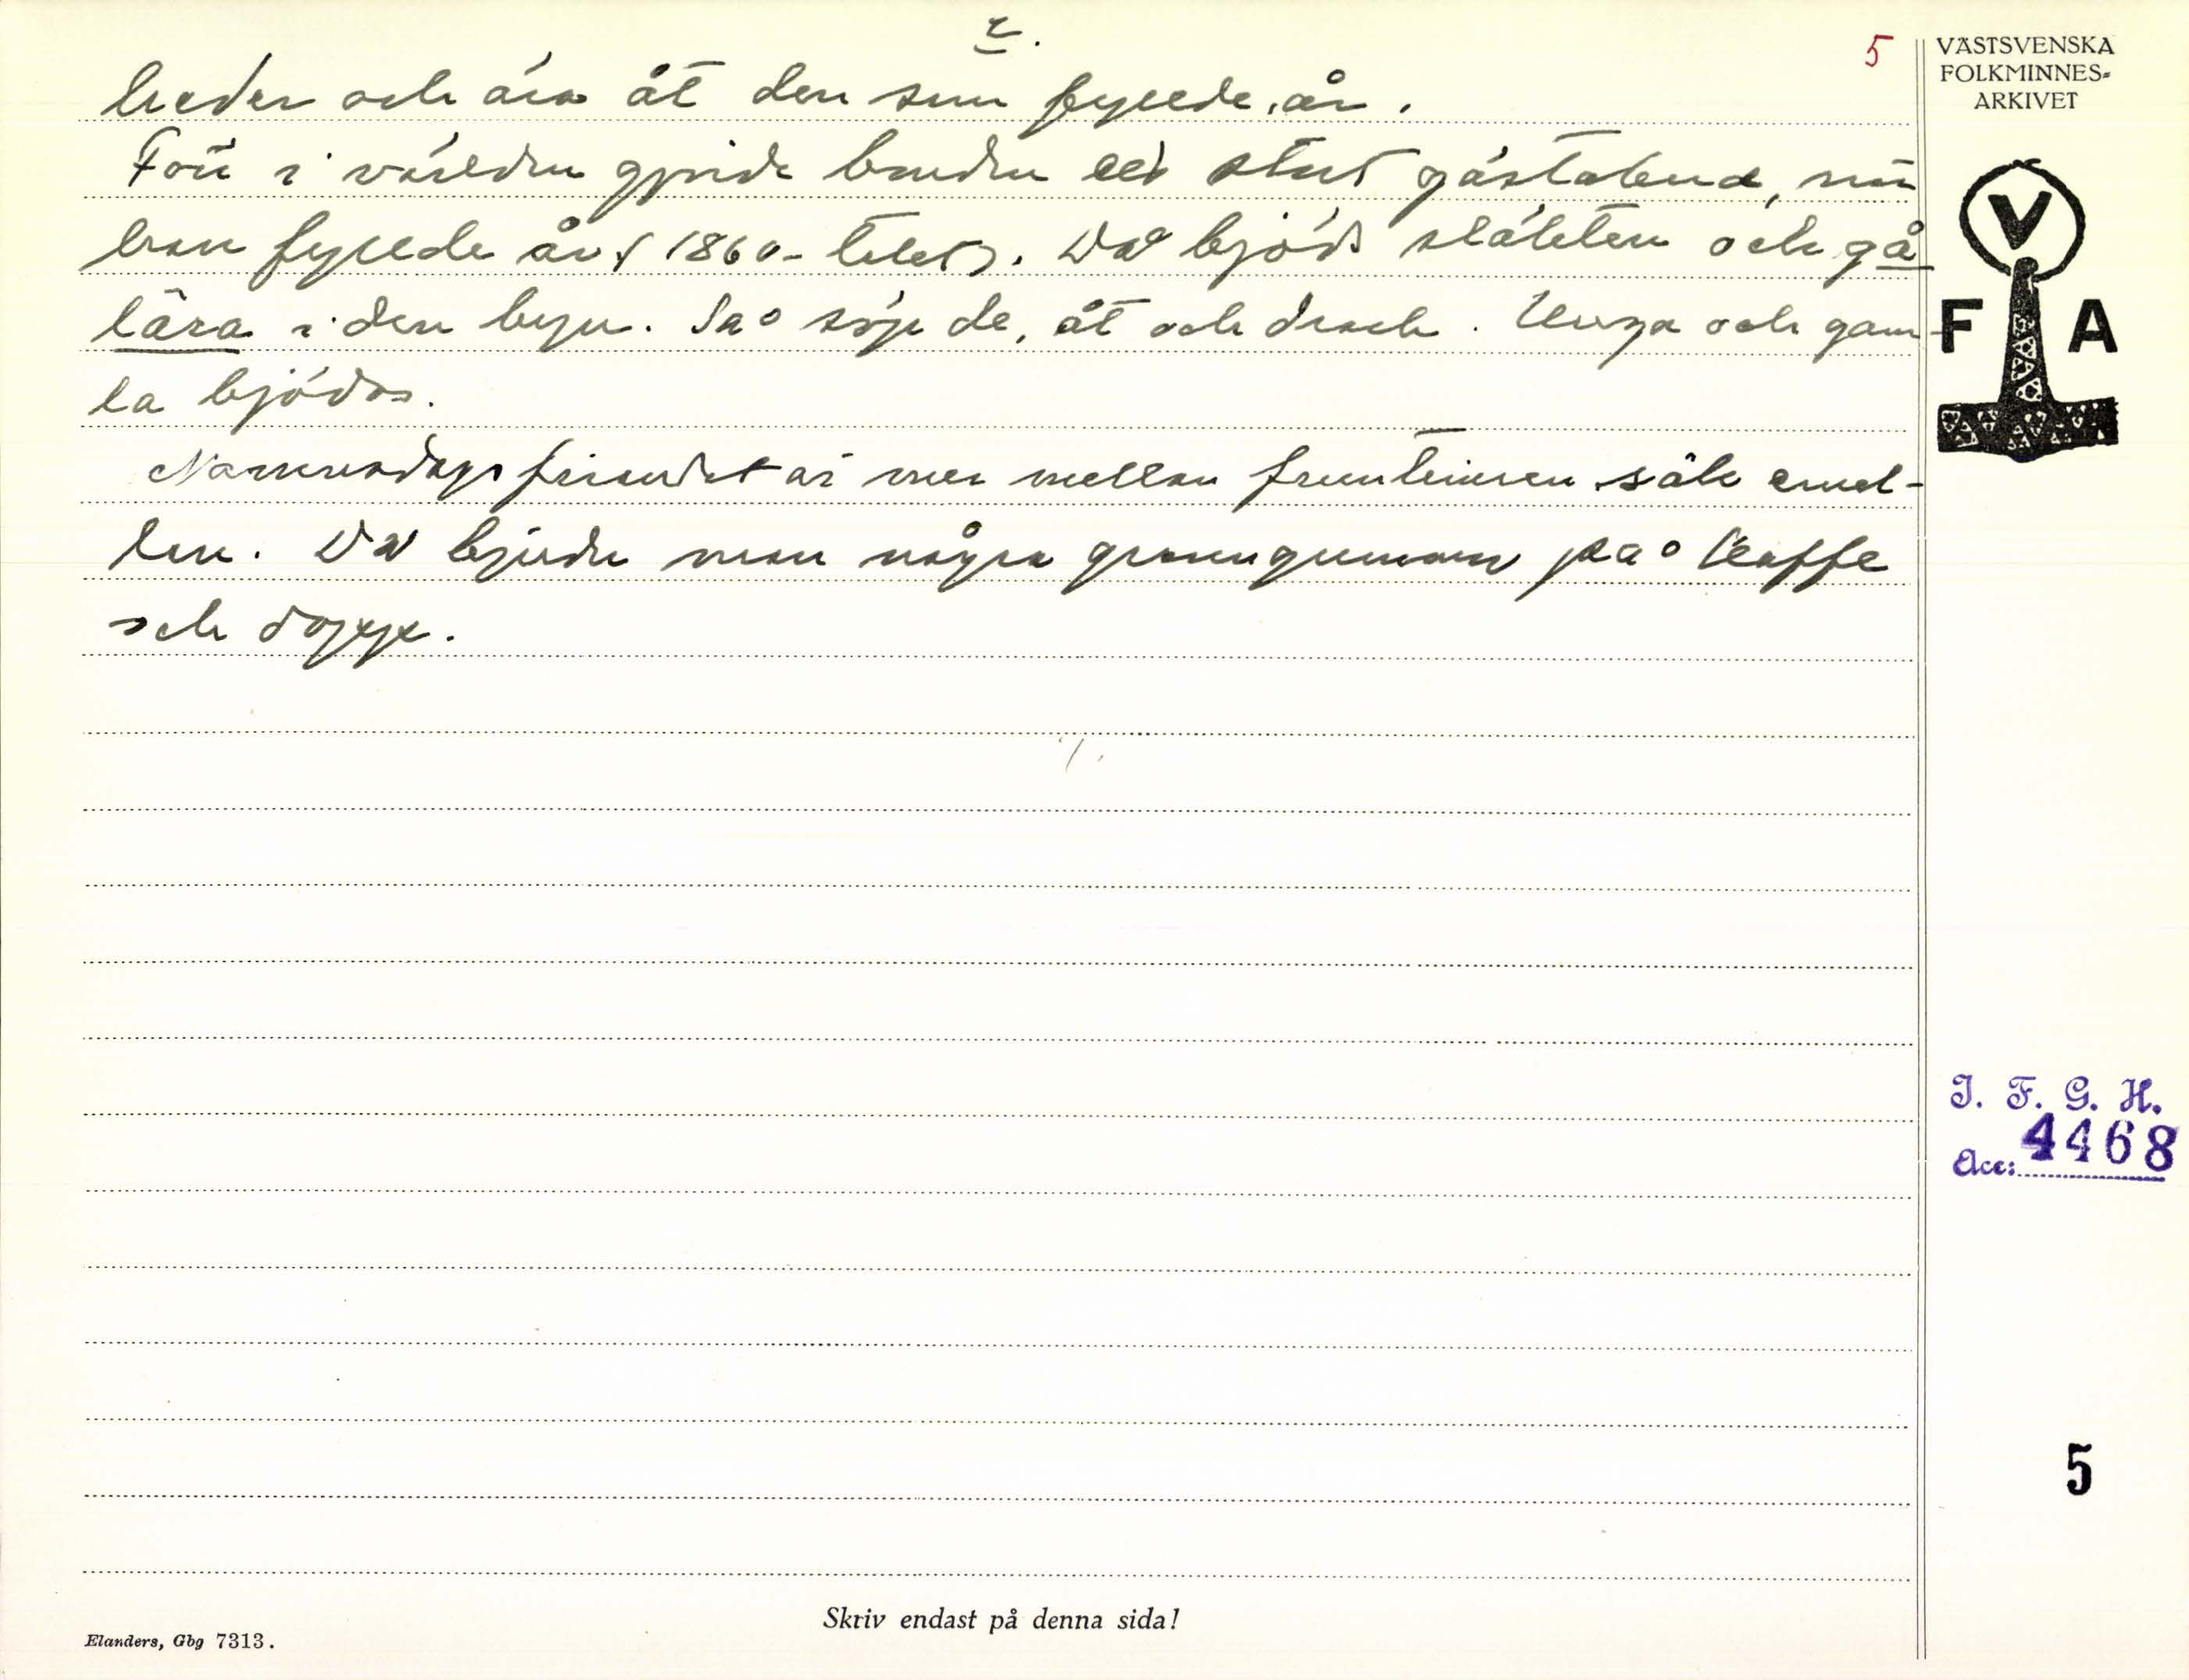 2.
5
heder och ära åt den som fyllde år.
Förr i världen gjorde bonden ett stort gästabud, när
han fyllde år (1860-talet). Då bjöds släkten och gå
lära i den byn. Så söp de, åt och drack. Unga och gam-
la bjödos.
Namnsdagsfirandet är mer mellan fruntimren såk emel-
len. Då bjuder man några granngummor på kaffe
och dopp.
VÄSTSVENSKA
FOLKMINNES-
ARKIVET
V
F A
I. F. G. H.
Acc: 4468
5
Skriv endast på denna sida!
Elanders, Gbg 7313.